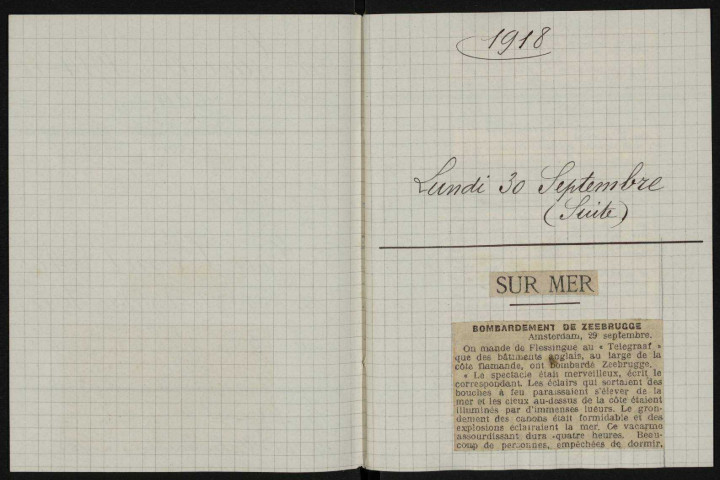 1918
Lundi 30 Septembre
(Suite)
SUR MER
BOMBARDEMENT DE ZEEBRUGGE
Amsterdam, 29 septembre.
On mande de Flessingue au « Telegraaf »
que des bâtiments anglais, au large de la
côte flamande, ont bombardé Zeebrugge.
« Le spectacle était merveilleux, écrit le
correspondant. Les éclairs qui sortaient des
bouches à feu paraissaient s'élever de la
mer et les cieux au-dessus de la côte étaient
illuminés par d'immenses lueurs. Le gron-
dement des canons était formidable et des
explosions éclairaient la mer. Ce vacarme
assourdissant dura quatre heures. Beau-
coup de personnes, empêchées de dormir,